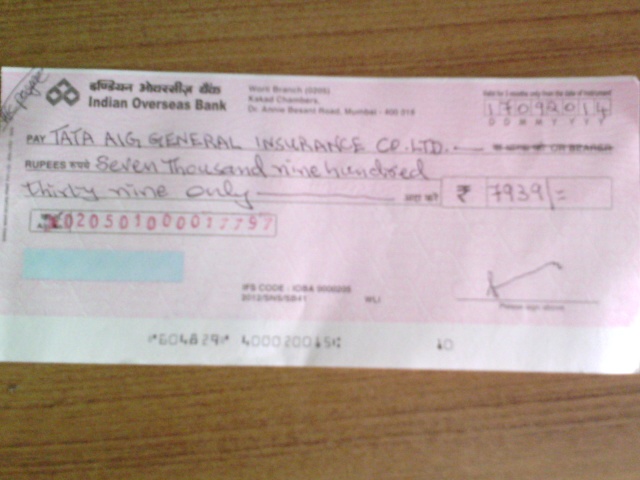 इण्डियन ओवरसीज़ बैंक
Indian Overseas Bank
Worli Branch (0205)
Kakad Chambers,
Dr. Annie Besant Road, Mumbai - 400 018
Valid for 3 months only from the date of instrument
17092014
D D M M Y Y Y Y
PAY TATA AIG GENERAL INSURANCE CO. LTD. OR BEARER
RUPEES रुपये Seven Thousand nine hundred
thirty nine only अदा करें ₹ 7939/=
020501000017797
IFS CODE : IOBA 0000205
2012/SNS/SB41 WLI
Please sign above
604829 400020015 10